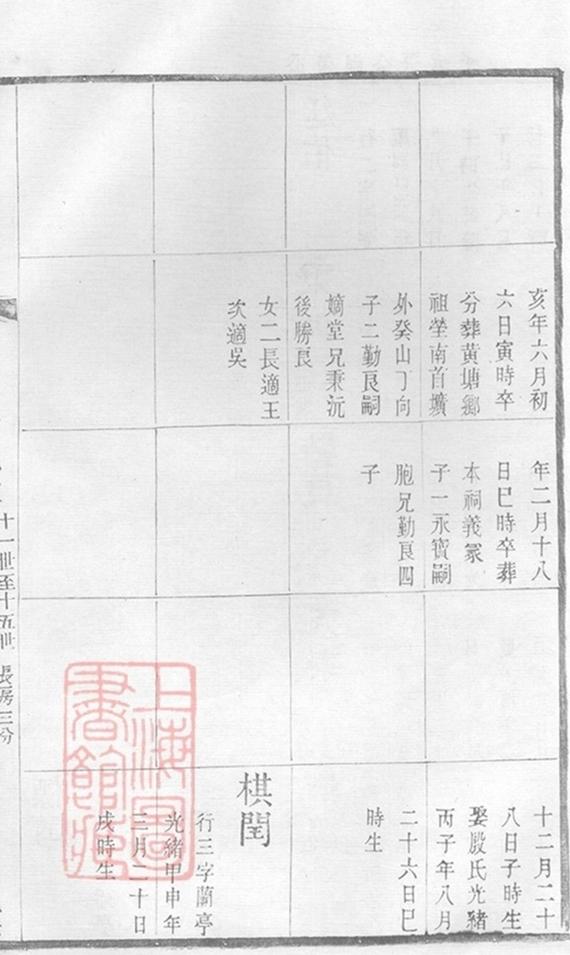 亥年六月初
六日寅時卒
分葬黄塘鄉
祖塋南首壙
外癸山丁向
子二勤良嗣
嫡堂兄秉沅
後勝良
女二長適王
次適吳
年二月十八
日巳時卒葬
本祠義冢
子一永寶嗣
胞兄勤良四
子
十二月二十
八日子時生
娶殷氏光緒
丙子年八月
二十六日巳
時生
棋閏
行三字蘭亭
光緒甲申年
三月二十日
戌時生
十一世至十五世 長房三份
上海圖
書館藏